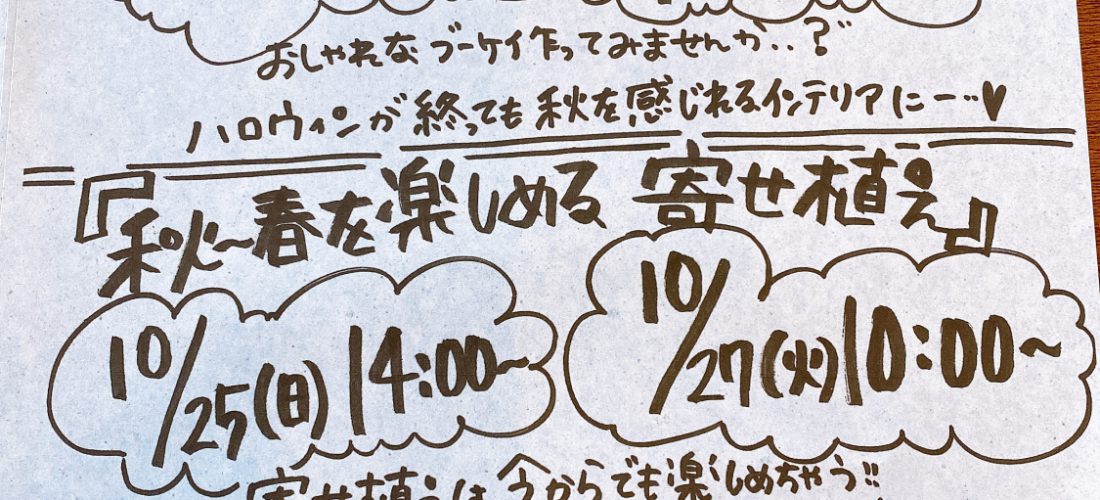 おしゃれなブーケイ作ってみませんか‥?
ハロウィンが終っても秋を感じれるインテリアにー‥♥
『秋〜春を楽しめる 寄せ植え』
10/25(日)14:00〜
10/27(火)10:00〜
寄せ植えは今からでも楽しめちゃう!!